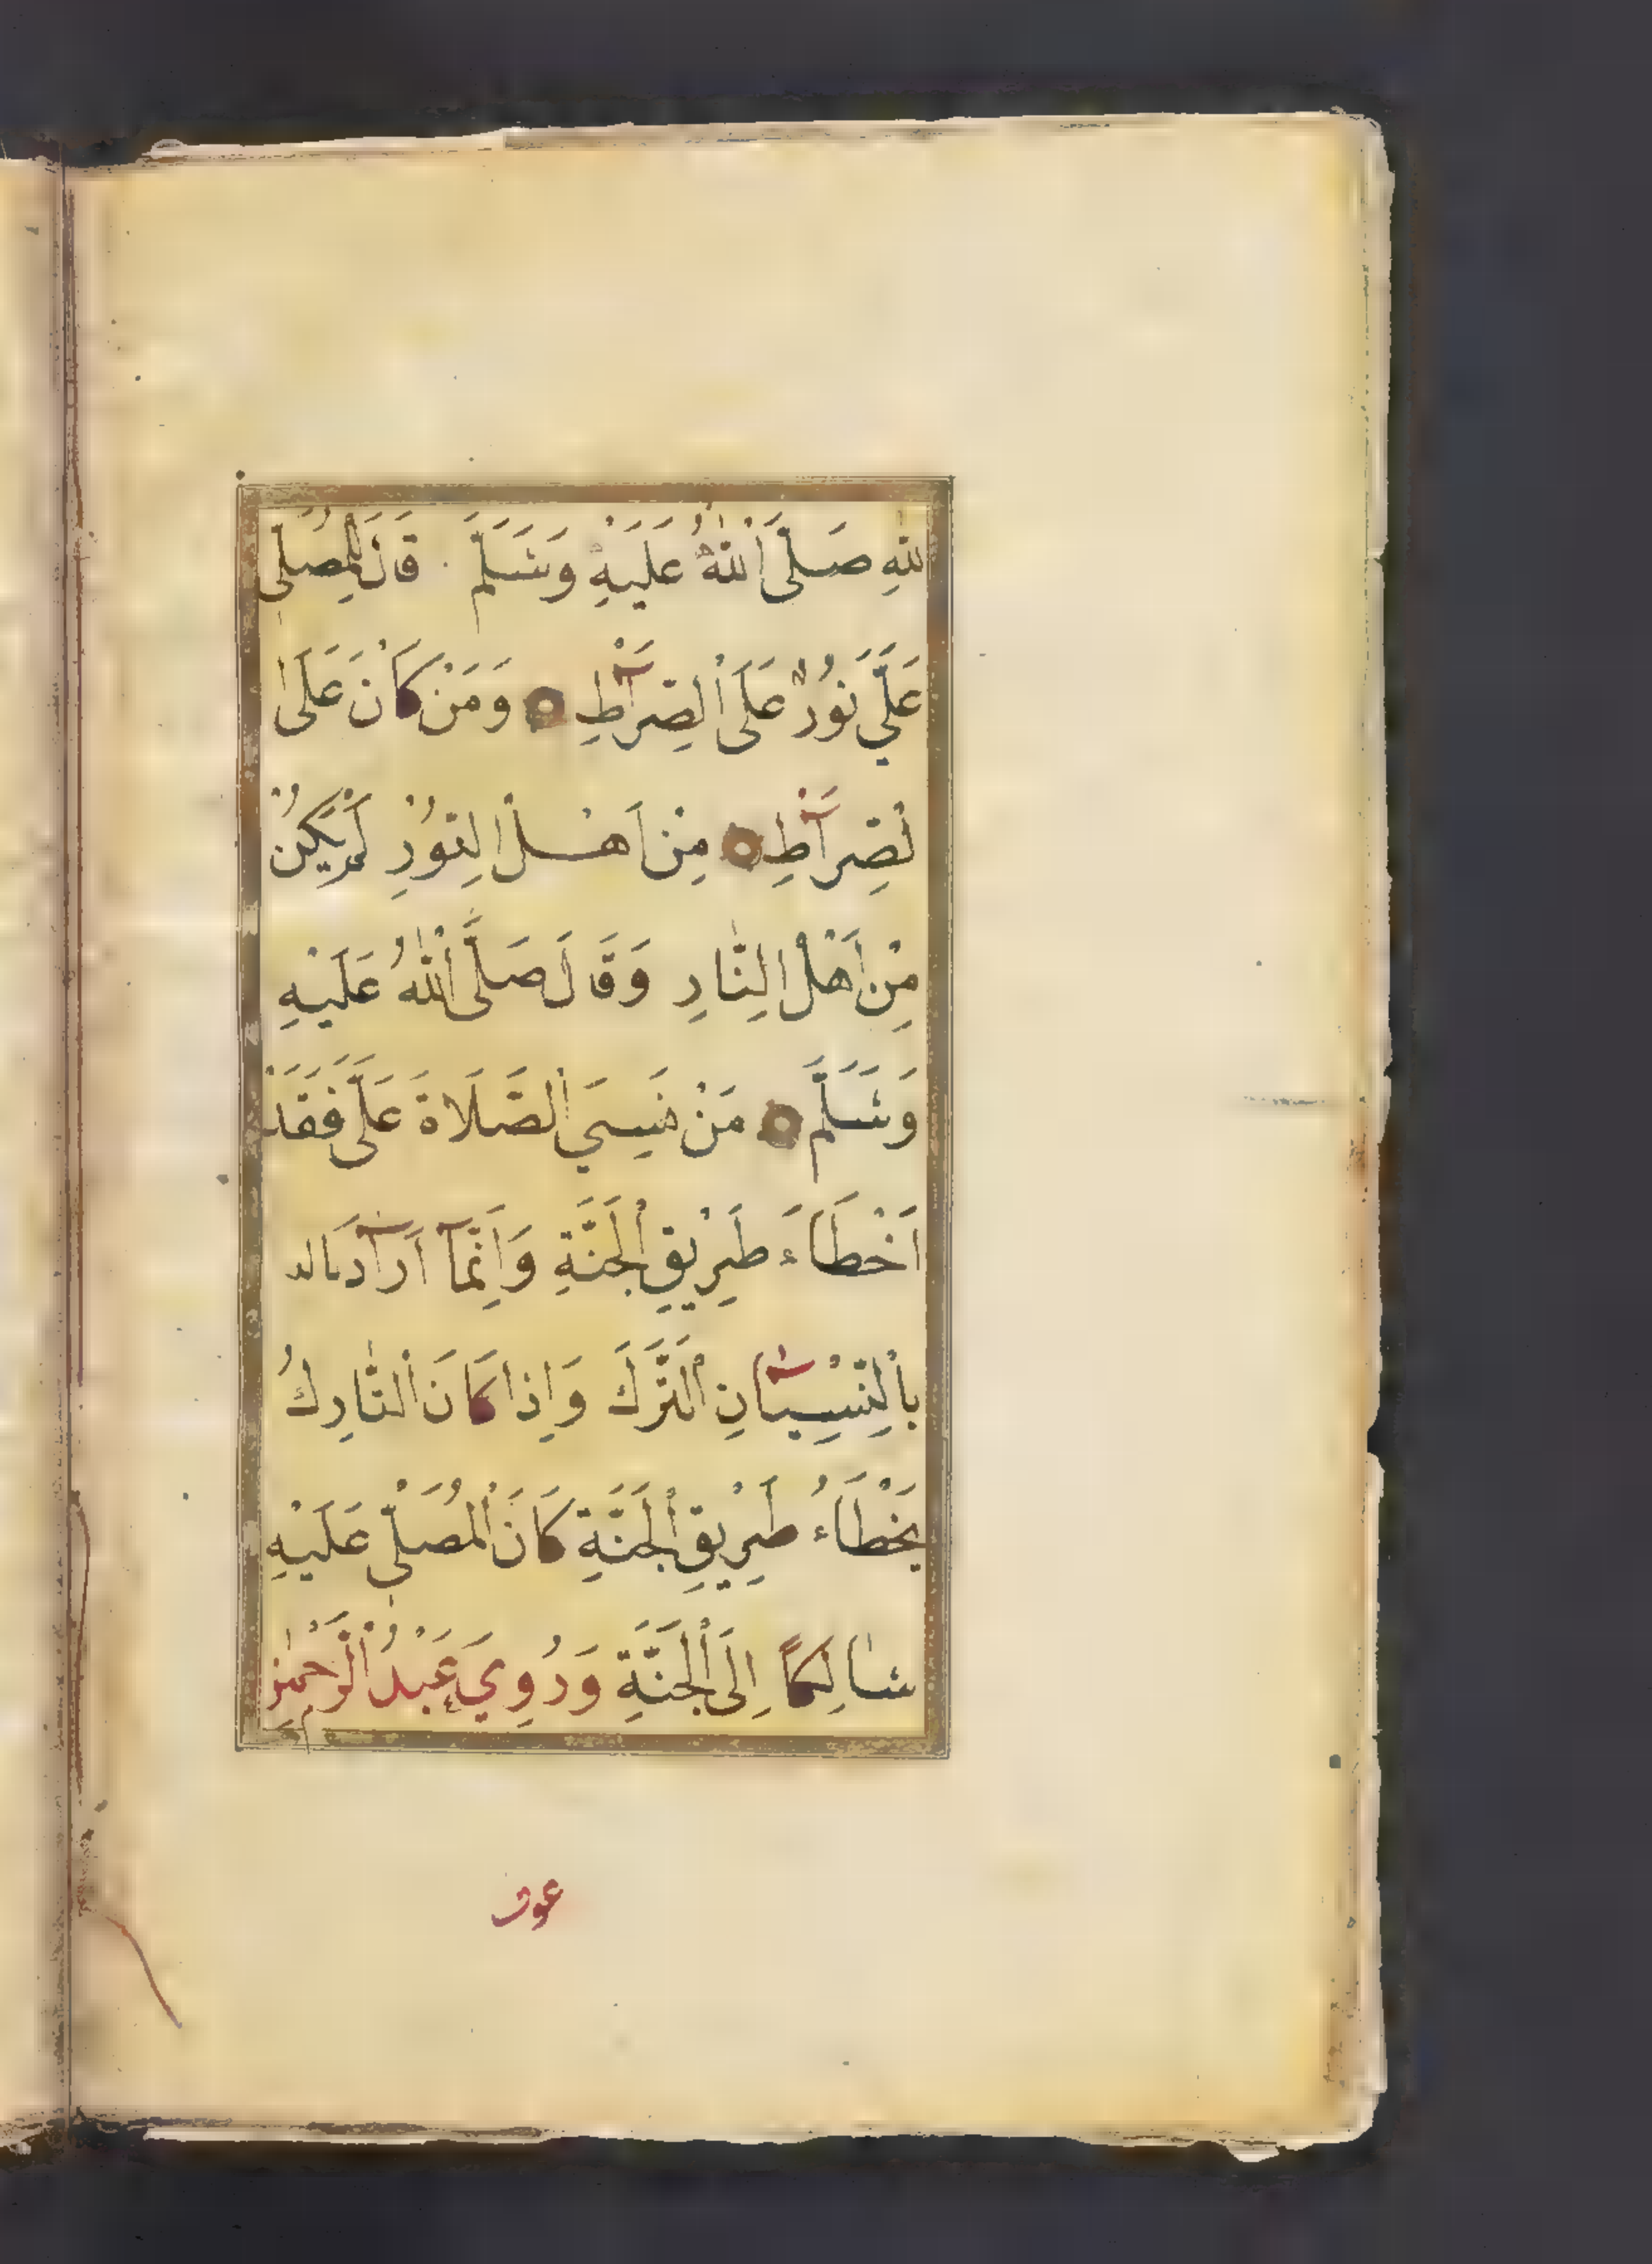 للهِ صَلَّى اللهُ عَلَيْهِ وَسَلَّمَ قَالَ لِلْمُصَلِّي
عَلَيَّ نُورٌ عَلَى الصِّرَاطِ وَمَنْ كَانَ عَلَى
لصِّرَاطِ مِنْ اَهْلِ النُّورِ لَمْ يَكُنْ
مِنْ اَهْلِ النَّارِ وَقَالَ صَلَّى اللهُ عَلَيْهِ
وَسَلَّمَ مَنْ نَسِيَ الصَّلَاةَ عَلَيَّ فَقَدْ
اَخْطَاَءَ طَرِيقَ الْجَنَّةِ وَاِنَّمَا اَرَادَ
بِالنِّسْيَانِ التَّرْكَ وَاِذَا كَانَ التَّارِكُ
يَخْطَاءُ طَرِيقَ الْجَنَّةِ كَانَ الْمُصَلِّي عَلَيْهِ
سَالِكًا اِلَى الْجَنَّةِ وَرُوِيَ عَبْدُ الرَّحْمٰنِ
عوف